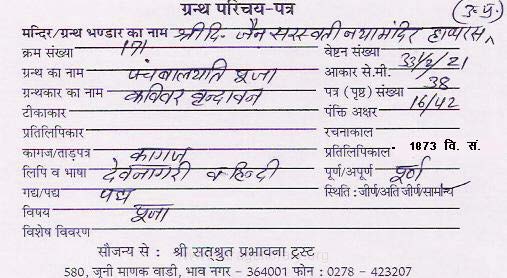 ग्रन्थ परिचय-पत्र
(उ.प्र.)
मन्दिर/ग्रन्थ भण्डार का नाम श्री दि- जैन सरस्वती नयामंदिर हाथरस
क्रम संख्या 171 वेष्टन संख्या
ग्रन्थ का नाम पंचबालयति पूजा आकार से.मी. 33/2/21
ग्रन्थकार का नाम कविवर वृन्दावन पत्र (पृष्ठ) संख्या 38
टीकाकार पंक्ति अक्षर 16/42
प्रतिलिपिकार रचनाकाल
कागज/ताड़पत्र कागज प्रतिलिपिकाल- 1873 वि. सं.
लिपि व भाषा देवनागरी व हिन्दी पूर्ण/अपूर्ण पूर्ण
गद्य/पद्य पद्य स्थिति : जीर्ण/अति जीर्ण/सामान्य
विषय पूजा
विशेष विवरण
सौजन्य से : श्री सतश्रुत प्रभावना ट्रस्ट
580, जुनी माणक वाडी, भाव नगर - 364001 फोन : 0278 - 423207